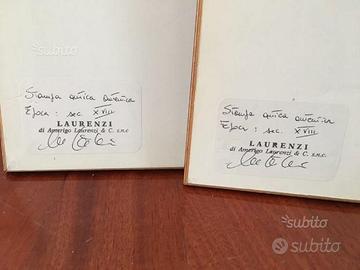 subito
Stampa antica autentica
Epoca : sec. XVIII
LAURENZI
di Amerigo Laurenzi & C. s.n.c.
Stampa antica autentica
Epoca : sec. XVIII
LAURENZI
di Amerigo Laurenzi & C. s.n.c.
subito
subito